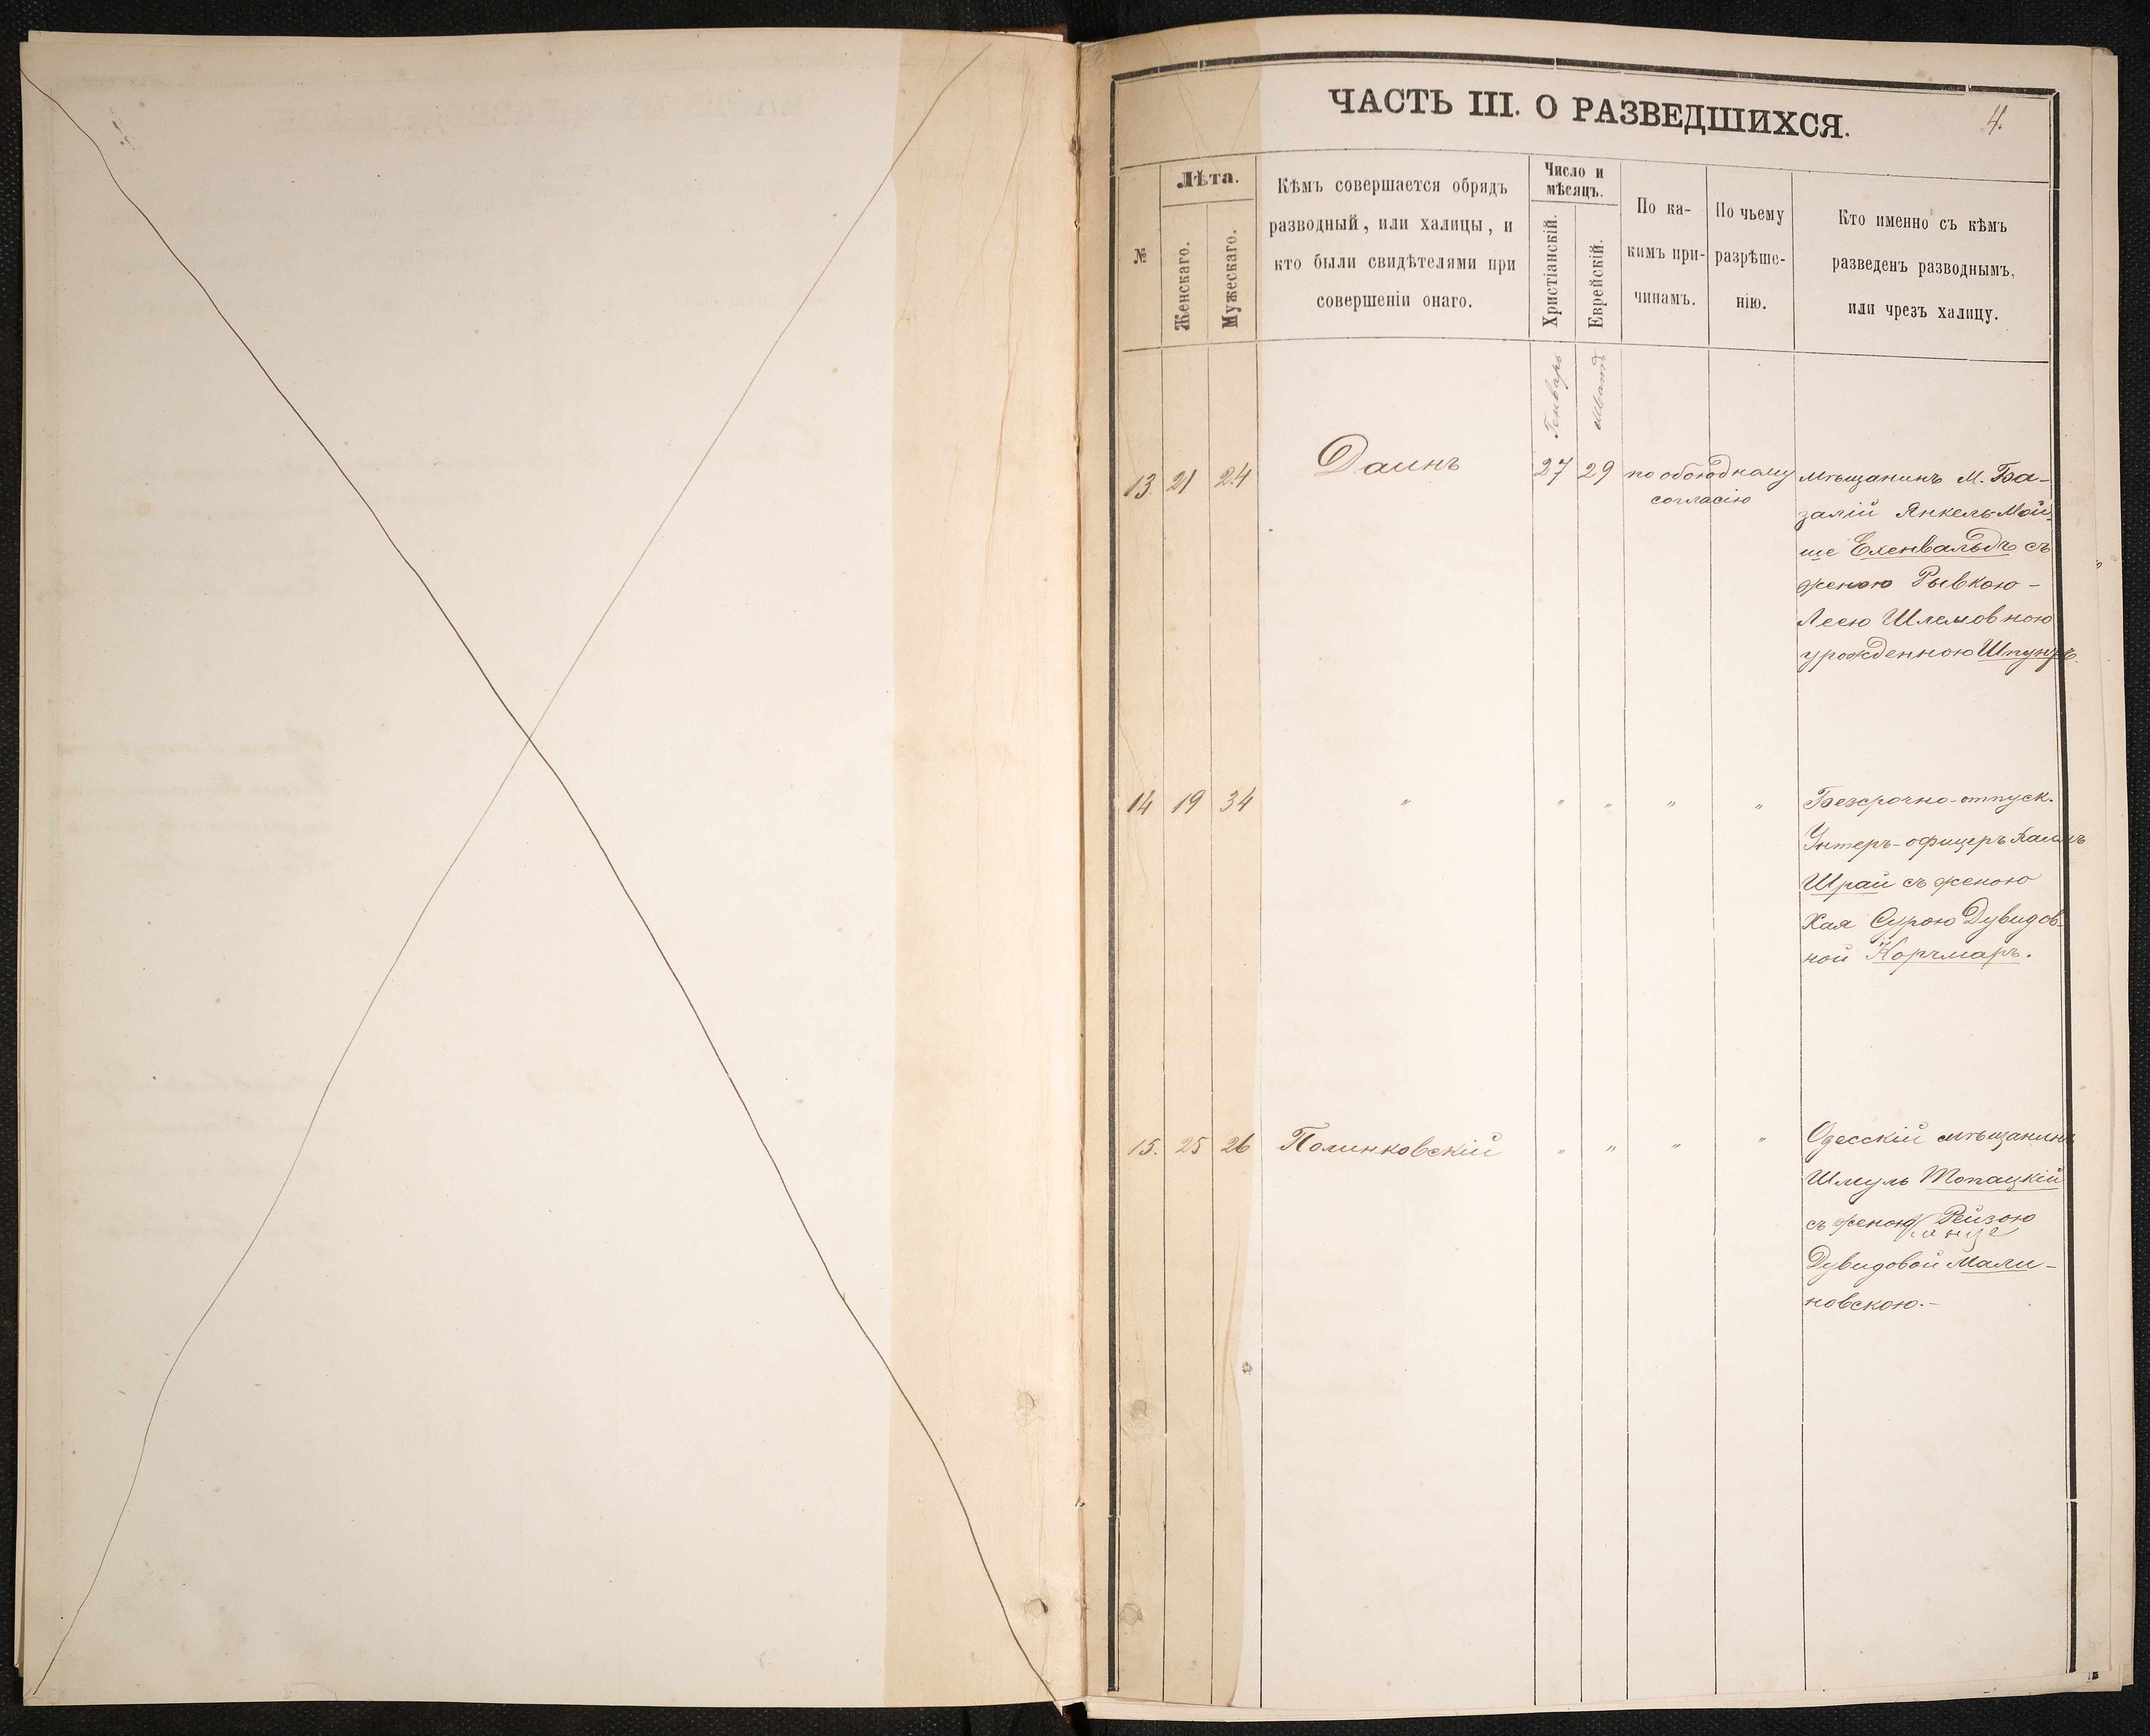 ЧАСТЬ III. О РАЗВЕДШИХСЯ.
4.
№
Лѣта.
Женскаго.
Мужескаго.
Кѣмъ совершается обрядъ
разводный, или халицы, и
кто были свидѣтелями при
совершеніи онаго.
Число и
мѣсяцъ.
Христіанскій.
Еврейскій.
По ка-
кимъ при-
чинамъ.
По чьему
разрѣше-
нію.
Кто именно съ кѣмъ
разведенъ разводнымъ,
или чрезъ халицу.
Генварь
Шватъ
13. 21 24 Даинъ 27 29 по обоюдному мѣщанинъ М. Ба-
согласію
залій Янкель-Мой-
ше Еленвальдъ съ
женою Рывкою-
Леею Шлемовною
урожденною Шпунтъ.
14 19 34 " " " " " Безсрочно-отпуск.
Унтеръ-офицеръ
Шрай съ женою
Хая Сурою Дувидов-
ной Корчмаръ.
15. 25 26 Полинковскій " " " " Одесскій мѣщанинъ
Шмуль Топацкій
съ женою Рейзою
Дувидовой Мали-
новскою.-